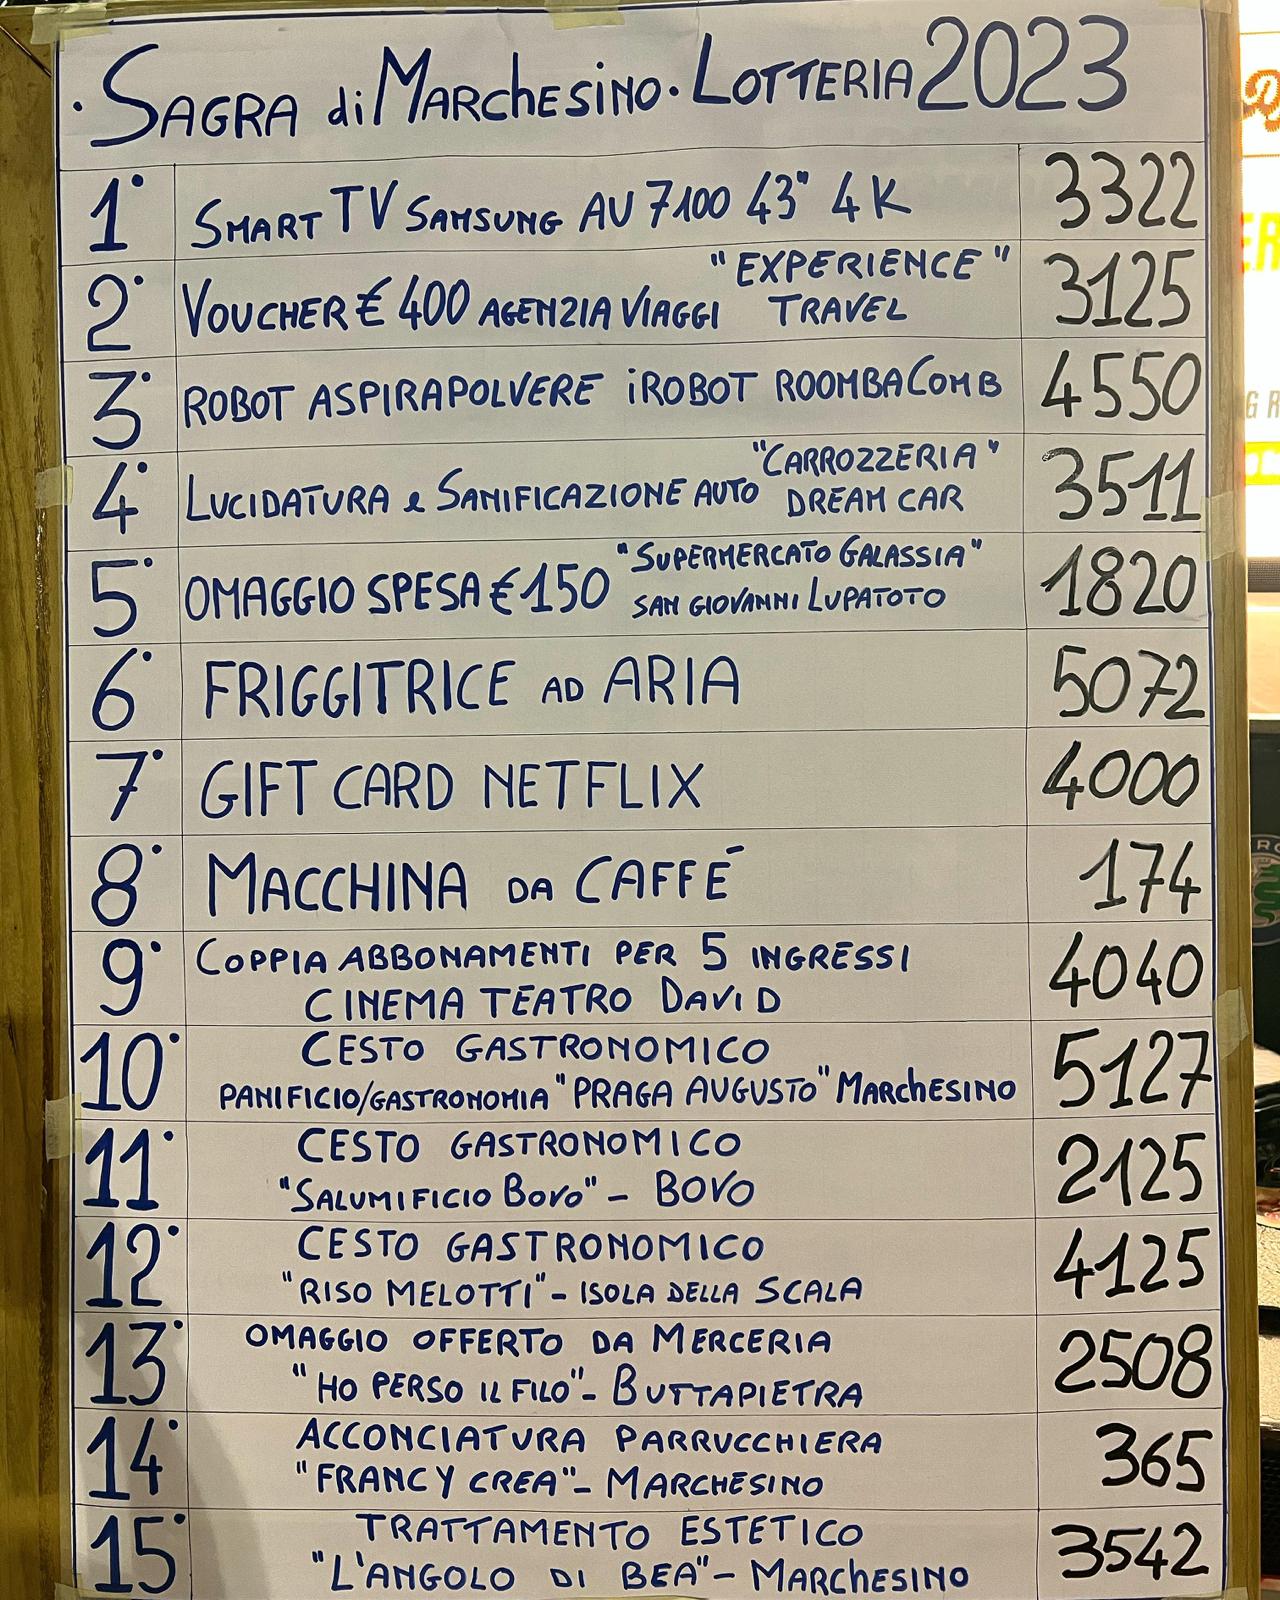 · SAGRA di MARCHESINO · LOTTERIA 2023
1° SMART TV SAMSUNG AU7100 43" 4K 3322
2° VOUCHER € 400 AGENZIA VIAGGI "EXPERIENCE" TRAVEL 3125
3° ROBOT ASPIRAPOLVERE iROBOT ROOMBA COMB 4550
4° LUCIDATURA e SANIFICAZIONE AUTO "CARROZZERIA" DREAM CAR 3511
5° OMAGGIO SPESA € 150 "SUPERMERCATO GALASSIA" SAN GIOVANNI LUPATOTO 1820
6° FRIGGITRICE AD ARIA 5072
7° GIFT CARD NETFLIX 4000
8° MACCHINA DA CAFFÉ 174
9° COPPIA ABBONAMENTI PER 5 INGRESSI
CINEMA TEATRO DAVID 4040
10° CESTO GASTRONOMICO
PANIFICIO/GASTRONOMIA "PRAGA AUGUSTO" MARCHESINO 5127
11° CESTO GASTRONOMICO
"SALUMIFICIO BOVO" - BOVO 2125
12° CESTO GASTRONOMICO
"RISO MELOTTI" - ISOLA DELLA SCALA 4125
13° OMAGGIO OFFERTO DA MERCERIA
"HO PERSO IL FILO" - BUTTAPIETRA 2508
14° ACCONCIATURA PARRUCCHIERA
"FRANCY CREA" - MARCHESINO 365
15° TRATTAMENTO ESTETICO
"L'ANGOLO DI BEA" - MARCHESINO 3542